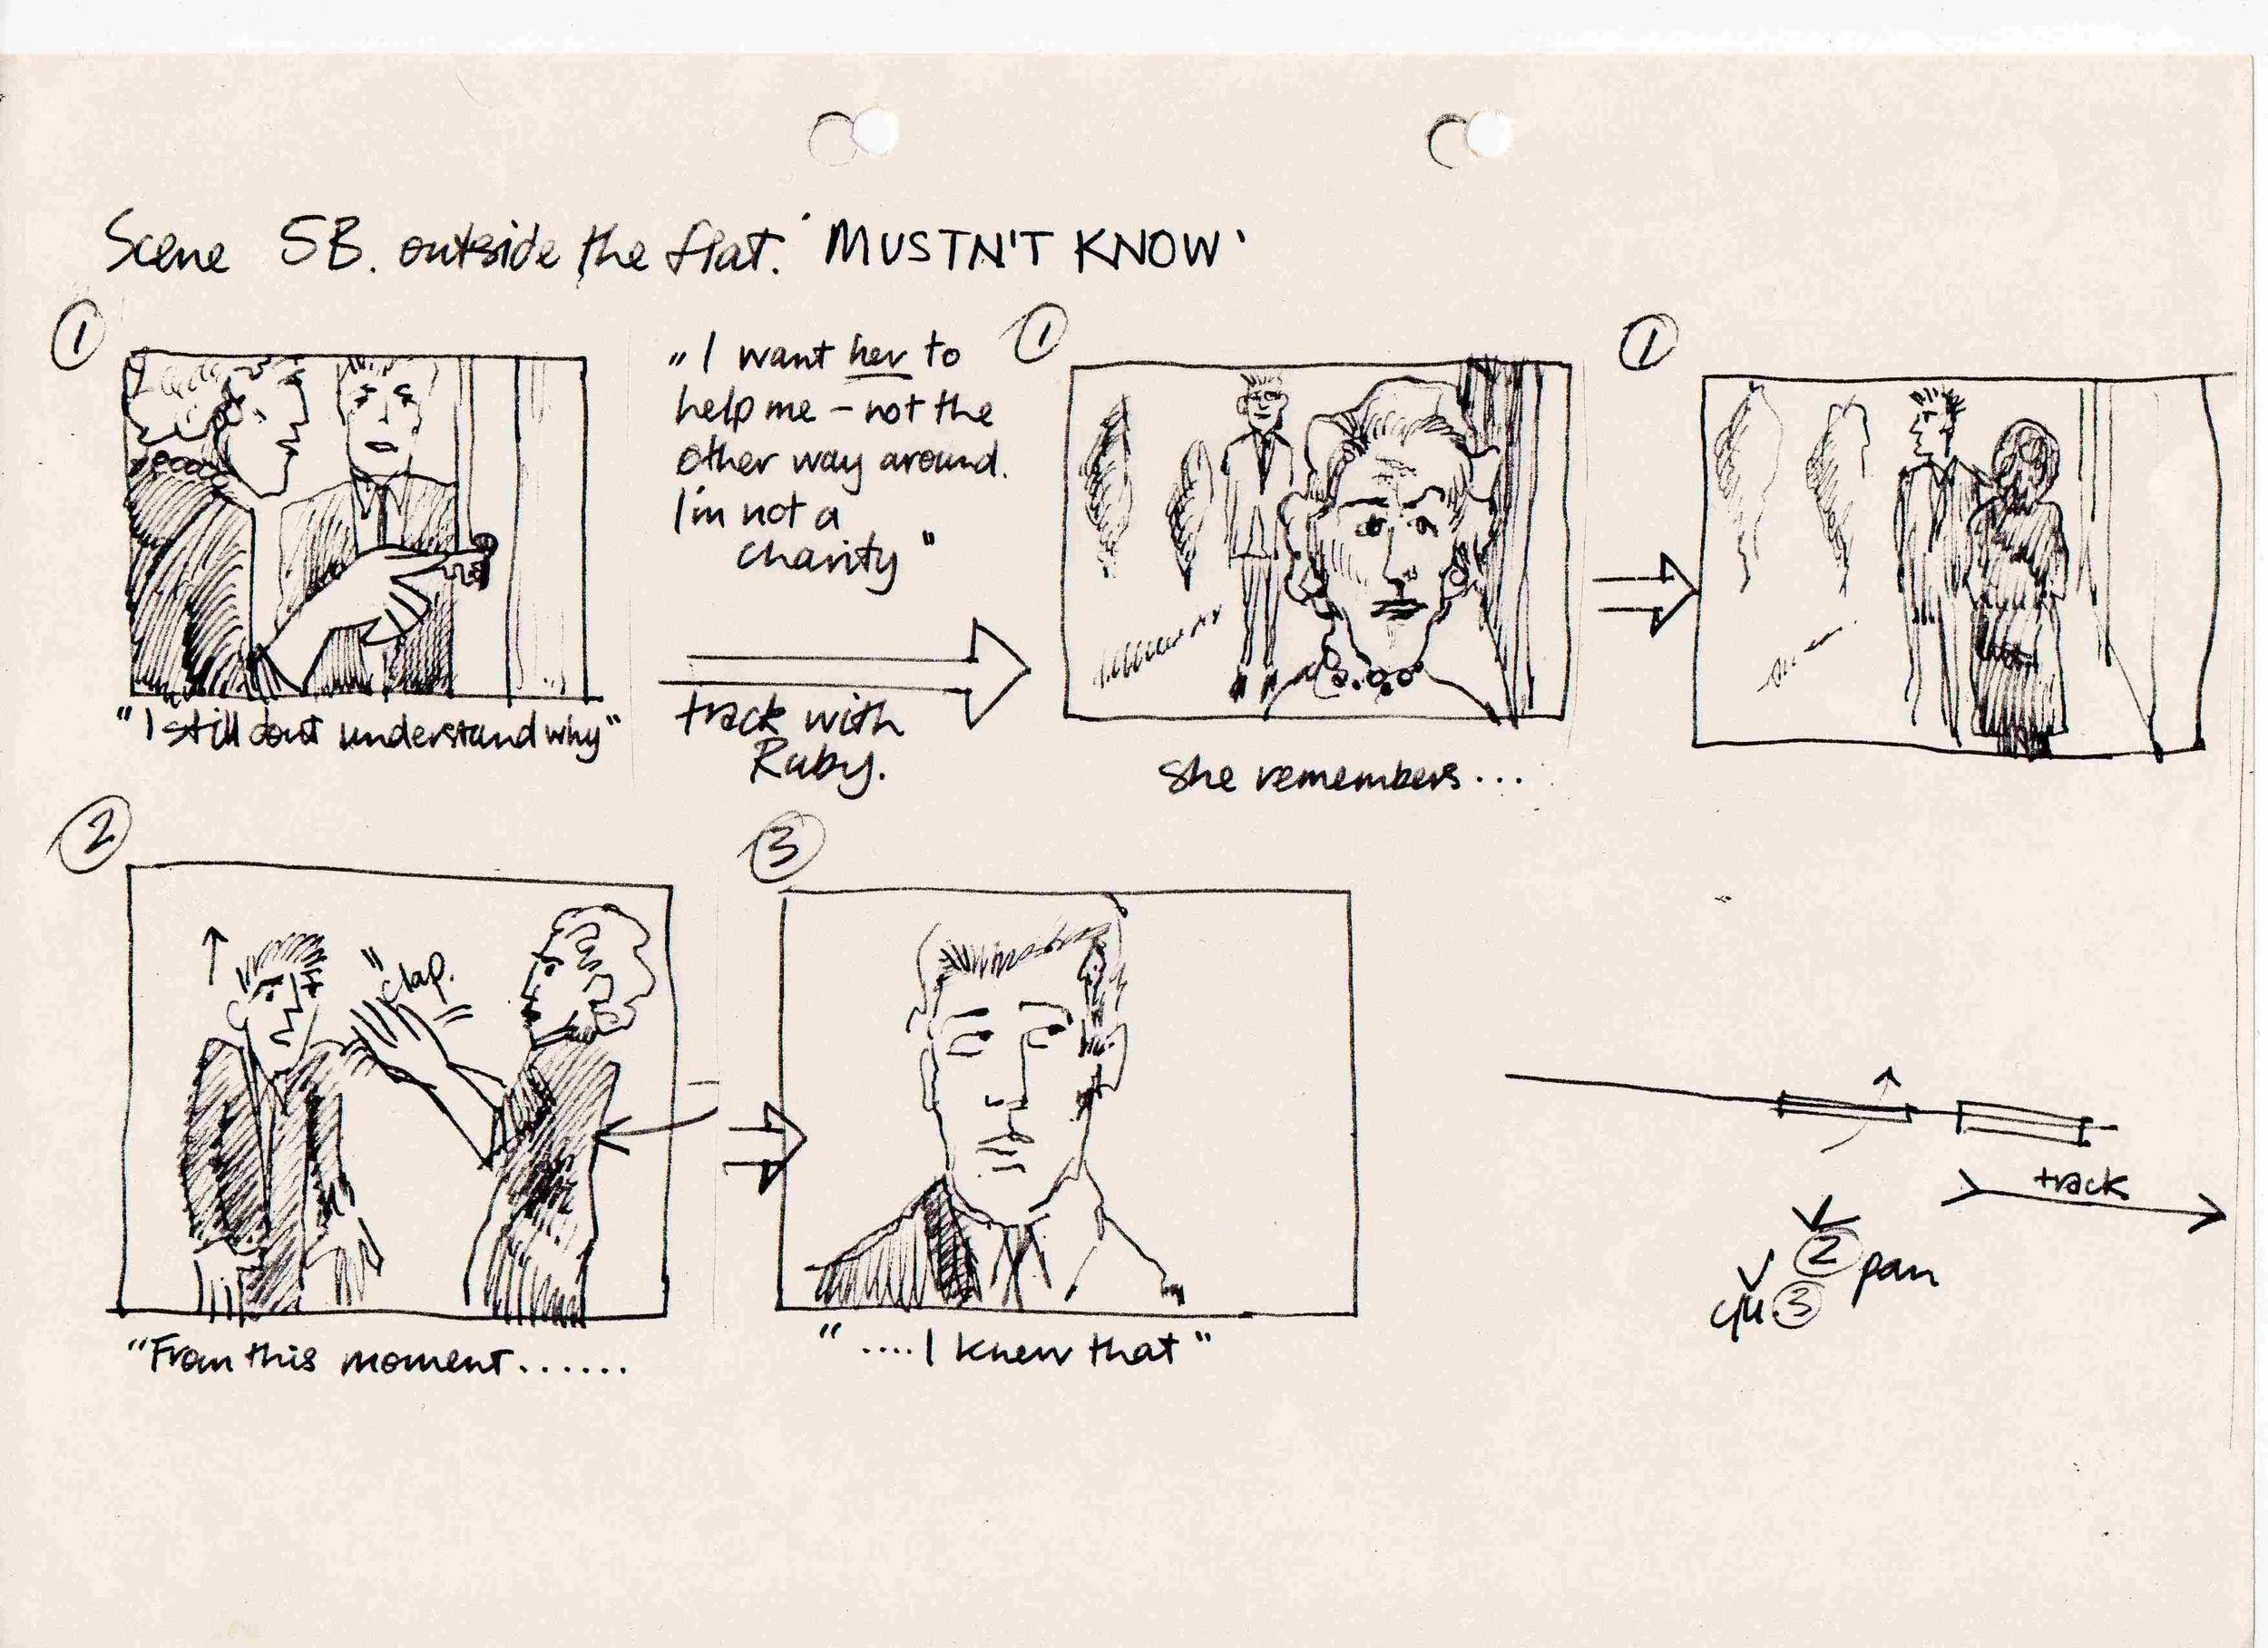 Scene 5B. outside the flat. 'MUSTN'T KNOW'
1
"I still dont understand why"
"I want her to
help me – not the
other way around.
I'm not a
charity"
track with
Ruby.
1
she remembers...
1
2
"clap.
"From this moment......
3
"....I knew that"
track
2 pan
3